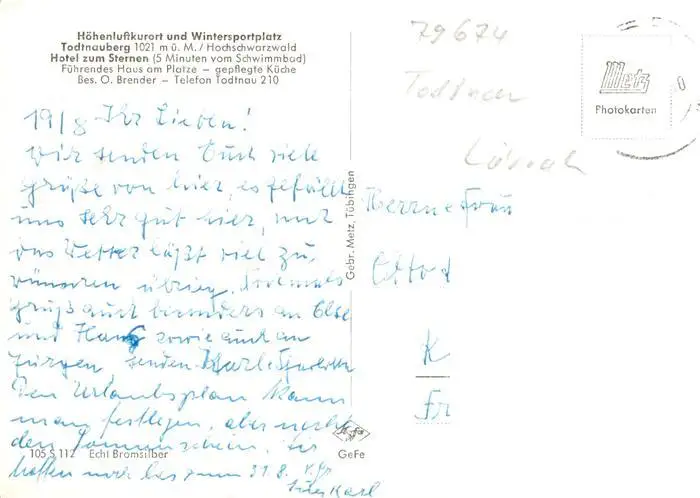 Höhenluftkurort und Wintersportplatz
Todtnauberg 1021 m ü. M. / Hochschwarzwald
Hotel zum Sternen (5 Minuten vom Schwimmbad)
Führendes Haus am Platze – gepflegte Küche
Bes. O. Brender – Telefon Todtnau 210
19/8 Ihr Lieben!
Wir senden Euch viele
Grüße von hier, es gefällt
uns sehr gut hier, nur
das Wetter läßt viel zu
wünschen übrig. Nochmals
Grüße auch besonders an Else
und Hans sowie auch an
Jürgen, senden Karl
Den Urlaubsplan kann
man festlegen, aber nicht
den Sonnenschein. Wir
hoffen noch bis zum 31.8.
Euer Karl
105 S 112 Echt Bromsilber
Agfa
GeFe
Gebr. Metz, Tübingen
79674
Todtnau
Lörrach
Metz
Photokarten
Herrn & Frau
K
Fr